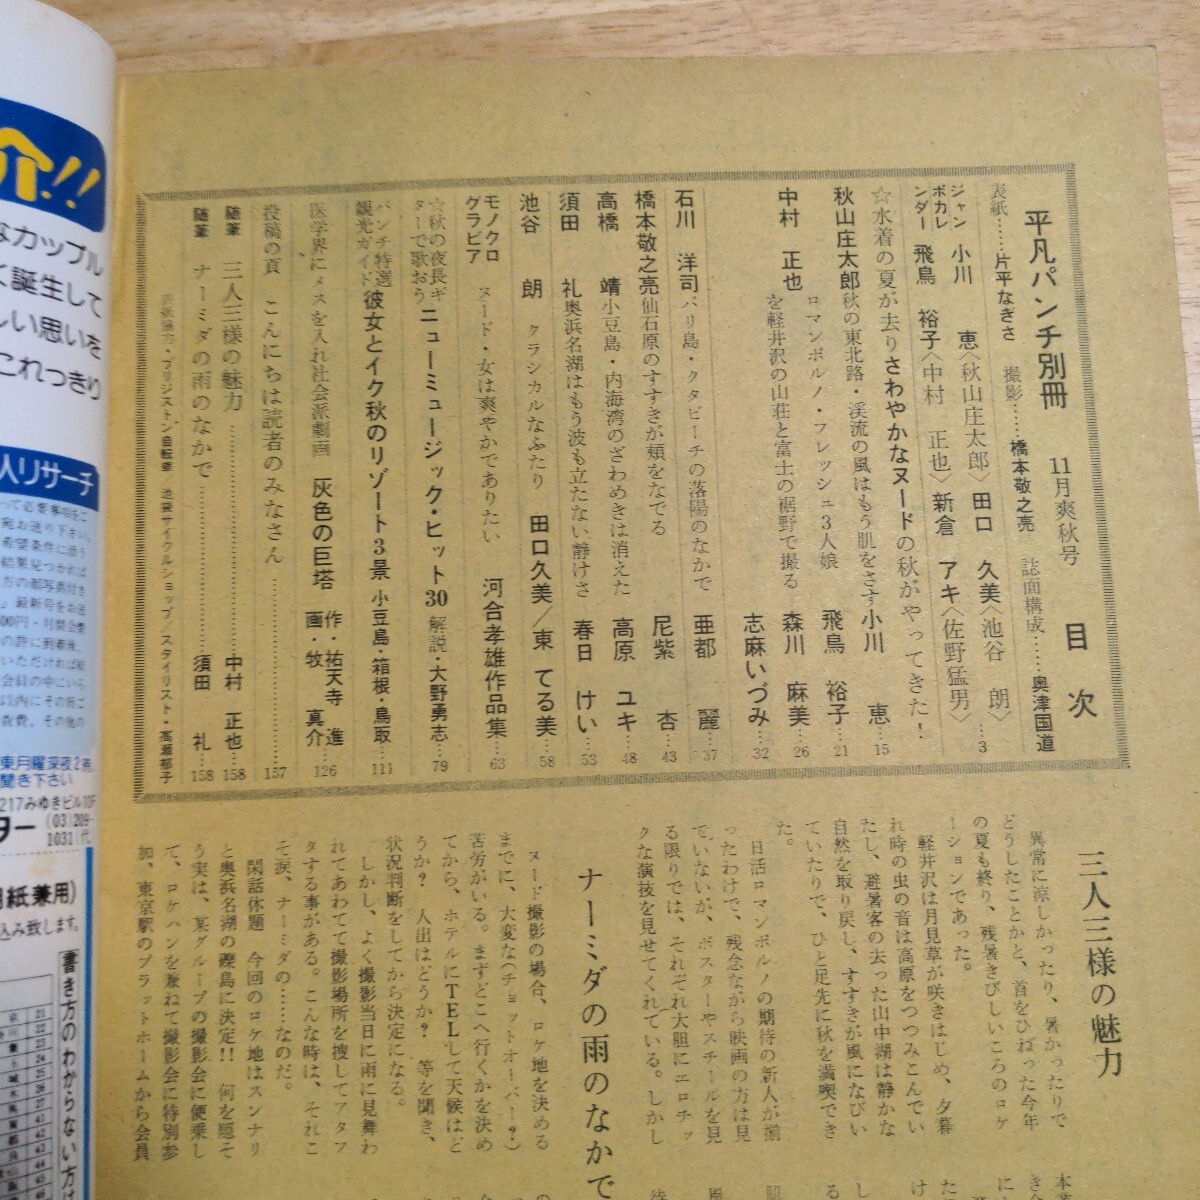 平凡パンチ別冊 11月爽秋号 目次
表紙……片平なぎさ 撮影……橋本敬之亮 誌面構成……奥津国道
ジャンボカレンダー
小川 恵〈秋山庄太郎〉田口 久美〈池谷 朗〉…3
飛鳥 裕子〈中村 正也〉新倉 アキ〈佐野猛男〉
☆水着の夏が去りさわやかなヌードの秋がやってきた!
秋山庄太郎 秋の東北路・渓流の風はもう肌をさす 小川 恵…15
中村 正也 ロマンポルノ・フレッシュ3人娘 飛鳥 裕子…21
を軽井沢の山荘と富士の裾野で撮る 森川 麻美…26
志麻いづみ…32
石川 洋司 バリ島・クタビーチの落陽のなかで 亜都 麗…37
橋本敬之亮 仙石原のすすきが頬をなでる 尼紫 杏…43
高橋 靖 小豆島・内海湾のざわめきは消えた 高原 ユキ…48
須田 礼 奥浜名湖はもう波も立たない静けさ 春日 けい…53
池谷 朗 クラシカルなふたり 田口久美/東 てる美…58
モノクログラビア ヌード・女は爽やかでありたい 河合孝雄作品集…63
☆秋の夜長ギターで歌おう ニューミュージック・ヒット30 解説・大野勇志…79
パンチ特選観光ガイド 彼女とイク秋のリゾート3景 小豆島・箱根・鳥取…111
医学界にメスを入れ社会派劇画 灰色の巨塔 作・祐天寺 進 画・牧 真介…126
投稿の頁 こんにちは読者のみなさん……157
随筆 三人三様の魅力……中村 正也…158
随筆 ナーミダの雨のなかで……須田 礼…158
表紙協力・ブリジストン自転車/池袋サイクルショップ/スタイリスト・高瀬郁子
三人三様の魅力
異常に涼しかったり、暑かったりで
どうしたことかと、首をひねった今年
の夏も終り、残暑きびしいころのロケ
ーションであった。
軽井沢は月見草が咲きはじめ、夕暮
れ時の虫の音は高原をつつみこんでい
たし、避暑客の去った山中湖は静かな
自然を取り戻し、すすきが風になびい
ていたりで、ひと足先に秋を満喫でき
た。
日活ロマンポルノの期待の新人が揃
ったわけで、残念ながら映画の方は見
ていないが、ポスターやスチールを見
る限りでは、それぞれ大胆にエロチッ
クな演技を見せてくれている。しかし
ナーミダの雨のなかで
ヌード撮影の場合、ロケ地を決める
までに、大変な(チョットオーバー?)
苦労がいる。まずどこへ行くかを決め
てから、ホテルにTELして天候はど
うか? 人出はどうか? 等を聞き、
状況判断をしてから決定になる。
しかし、よく撮影当日に雨に見舞わ
れてあわてて撮影場所を捜してアタフ
タする事がある。こんな時は、それこ
そ涙、ナーミダの……なのだ。
閑話休題 今回のロケ地はスンナリ
と奥浜名湖の礫島に決定!! 何を隠そ
う実は、某グループの撮影会に便乗し
て、ロケハンを兼ねて撮影会に特別参
加、東京駅のプラットホームから会員
介!!
なカップル
く誕生して
しい思いを
これっきり
人リサーチ
東月曜深夜2
聞き下さい
217みゆきビル10F
ター (03)209-1031(代
用紙兼用)
込み致します。
書き方のわからない方は